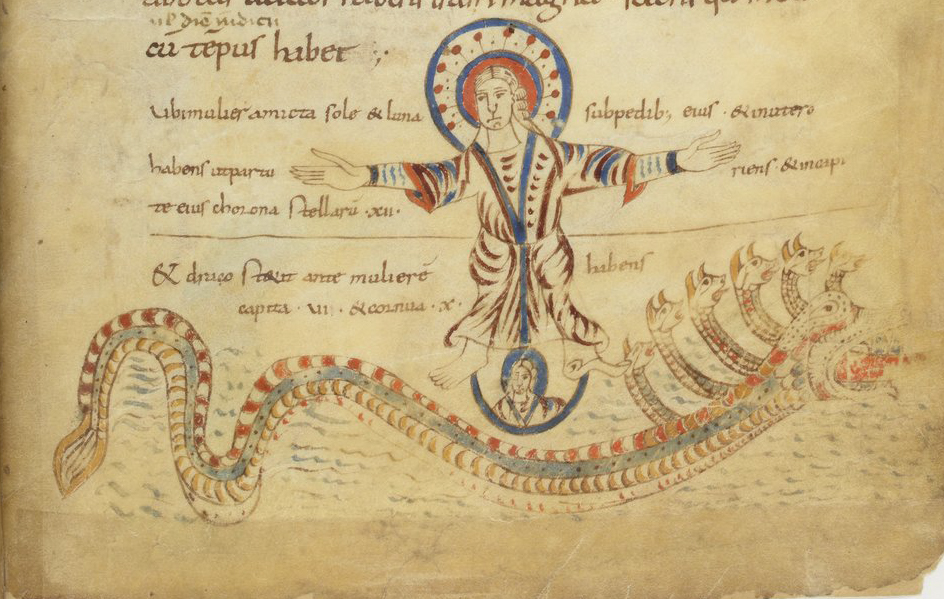 cū tēpus habet ;
Ubi mulier amicta sole & luna sub pedib; eius · & in utero
habens ut partu riens & incapi
te eius chorona stellarū · xii ·
& draco stetit ante mulierē habens
capita · vii · & cornua · x ·